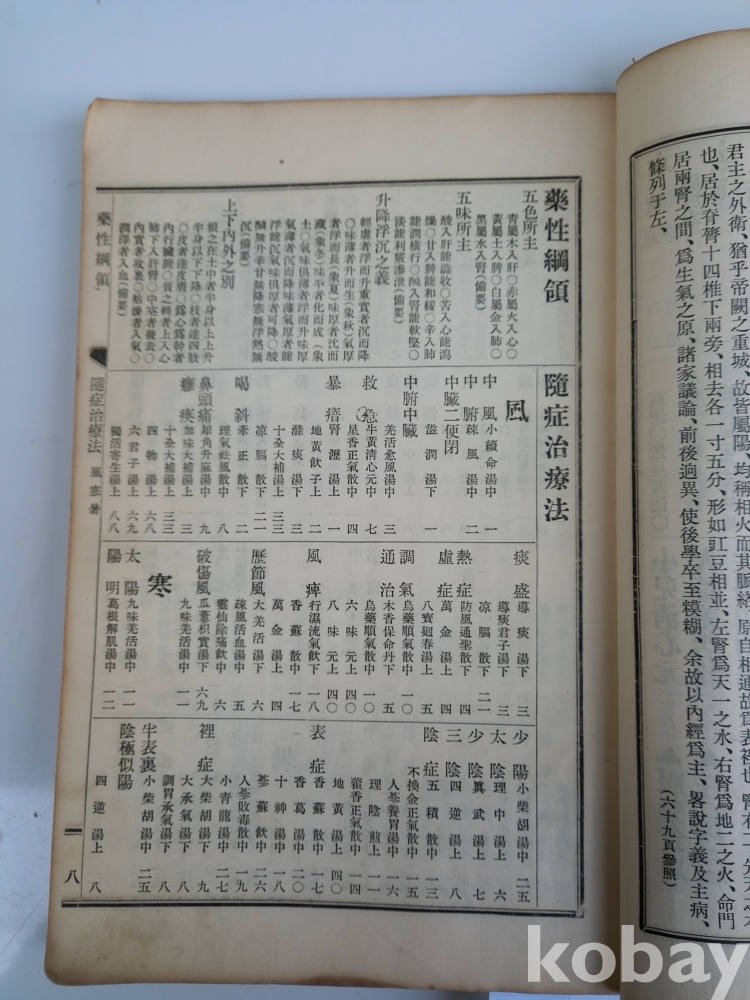 君主之外衛、猶乎帝闕之重城、故皆屬陽、均稱相火而其脈絡、原自相通故爲表裡也
也、居於脊膂十四椎下兩旁、相去各一寸五分、形如豇豆相並、左腎爲天一之水、右腎爲地二之火、命門
居兩腎之間、爲生氣之原、諸家議論、前後逈異、使後學卒至糢糊、余故以內經爲主、畧說字義及主病、
條列于左、
(六十九頁參照)
藥性綱領
五色所主
青屬木入肝○赤屬火入心○
黃屬土入脾○白屬金入肺○
黑屬水入腎(備要)
五味所主
酸入肝能澁收○苦入心能瀉
燥○甘入脾能和緩○辛入肺
能潤橫行○醎入腎能軟堅○
淡能利竅滲泄(備要)
升降浮沉之義
輕虛者浮而升重實者沉而降
○味薄者升而生(象春)氣厚
者浮而長(象夏)味厚者沈而
藏(象冬)味平者化而成(象
土)○氣味俱薄者浮而升味厚
氣薄者沉而降味薄氣厚者能
浮能沉氣味俱厚者可降○酸
醎無升辛甘無降寒無浮熱無
沉(備要)
上下內外之別
根之在土中者半身以上上升
半身以下下降○枝者達四肢
○皮者達皮膚○爲心爲幹者
內行臟腑○質之輕者上入心
肺下入肝腎○中空者發表○
內實者攻裏○枯燥者入氣○
潤澤者入血(備要)
隨症治療法
風
中風 小續命湯中 一
中腑 疎風湯中 二
中臟二便閉
滋潤湯下 一
中腑中臟
羌活愈風湯中 三
救急 牛黃清心元中 七
星香正氣散中 四
暴瘖 腎瀝湯上 一
地黃飮子上 二
滌痰湯下 三
十全大補湯上 三三
喎斜 凉膈散下 二一
牽正散下 二
理氣祛風散中 八
鼻頭痛 犀角升麻湯中 九
癱瘓 加味大補湯中 三
十全大補湯上 三三
四物湯上 六八
六君子湯上 六七
獨活寄生湯上 八八
痰盛 導痰湯下 三
導痰君子湯下 三
凉膈散下 二一
熱症 防風通聖散下 四
虛症 萬金湯上 四
八寶廻春湯上 五
調氣 烏藥順氣散中 一〇
通治 木香保命丹下 五
烏藥順氣散中 一〇
六味元上 四〇
八味元上 四〇
風痺 行濕流氣飮下 一八
香蘇散中 一七
萬金湯上 四
歷節風 大羌活湯下 六
疎風活血湯中 五
靈仙除痛飮中 六
破傷風 瓜蔞枳實湯下 六九
九味羌活湯中 一一
寒
太陽 九味羌活湯中 一一
陽明 葛根解肌湯中 一二
少陽 小柴胡湯中 二五
太陰 理中湯上 六
少陰 眞武湯上 七
三陰 四逆湯上 八
陰症 五積散中 一三
不換金正氣散中 一五
人蔘養胃湯中 一六
理陰煎上 一一
藿香正氣散中 一四
地黃湯上 四〇
表症 香蘇散中 一七
香葛湯中 一七
十神湯中 一八
蔘蘇飮中 二六
人蔘敗毒散中 一九
小青龍湯中 二七
裡症 大柴胡湯下 九
大承氣湯下 八
調胃承氣湯下 八
半表裏 小柴胡湯中 二五
陰極似陽
四逆湯上 八
藥性綱領
隨症治療法 風 寒 暑
八
kobay